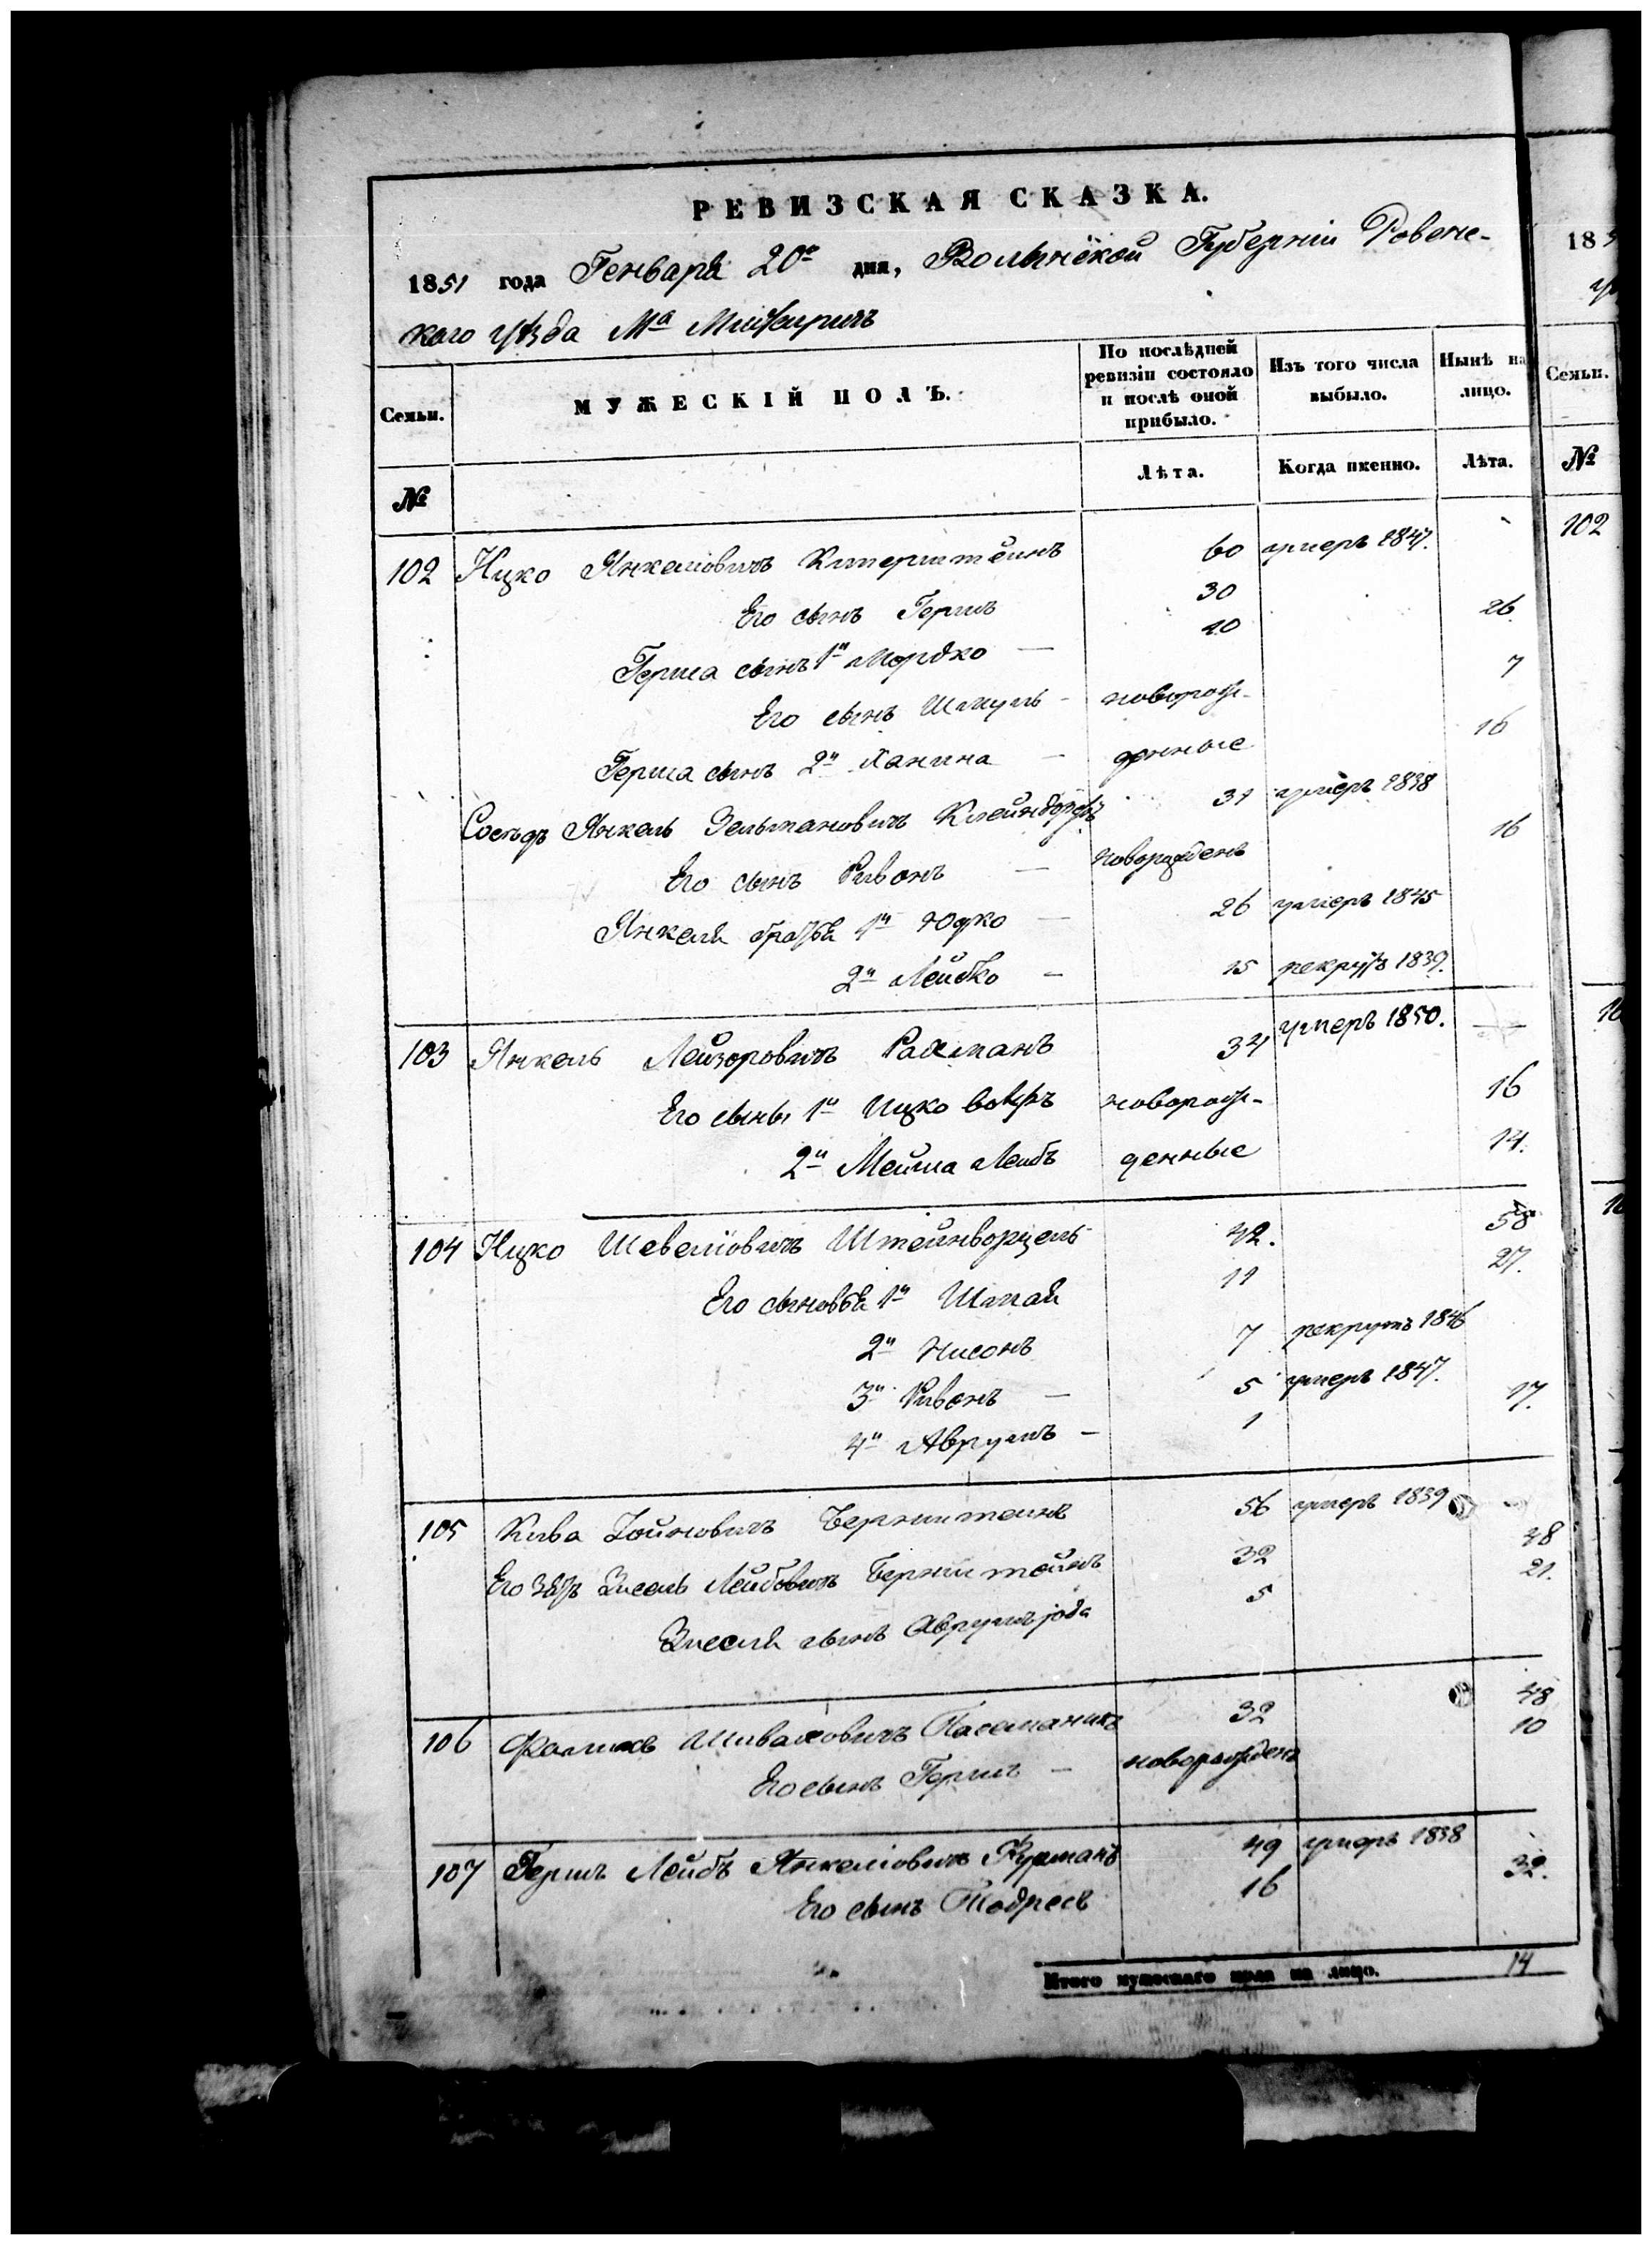 РЕВИЗСКАЯ СКАЗКА.
1851 года Генваря 20го дня, Волынской Губерніи Ровенс-
каго уѣзда Мa Межиричъ
Семьи. МУЖЕСКІЙ ПОЛЪ. По послѣдней ревизіи состояло и послѣ оной прибыло. Изъ того числа выбыло. Нынѣ на лицо. Семьи.
№ Лѣта. Когда именно. Лѣта. №
102 Ицко Янкеліовичъ 60 умеръ 1847. 102
Его сынъ Гершъ 30
Герша сынъ 1й Мордко — 10 26
Его сынъ Шмуль - новорож- 7
Герша сынъ 2й Ханина — денные 16
Сосѣдъ Янкель Зельмановичъ 31 умеръ 1838
Его сынъ Рывонъ — новорожденъ 16
Янкеля братья 1й Юдко — 26 умеръ 1845
2й Лейбко — 15 рекрутъ 1839.
103 Янкель Лейзоровичъ Рахманъ умеръ 1850. —
Его сыны 1й Ицко новорож- 16
2й Лейбъ денные 14.
104 Ицко Шевеліовичъ Штейнворцель 42. 58
Его сыновья 1й Шмая 11 27.
2й Нисонъ 7 рекрутъ 1846
3й Рывонъ — 5 умеръ 1847.
4й Аврумъ — 1 17.
105 Кива Бернштейнъ 56 умеръ 1839
Его Лейбовичъ Бернштейнъ 32 48
сынъ 5 21.
106 32 48
Его сынъ Гершъ — новорожденъ 10
107 Гершъ Лейбъ Янкеліовичъ 49 умеръ 1838
Его сынъ Тодресъ 16 32.
Итого мужескаго пола на лицо. 14